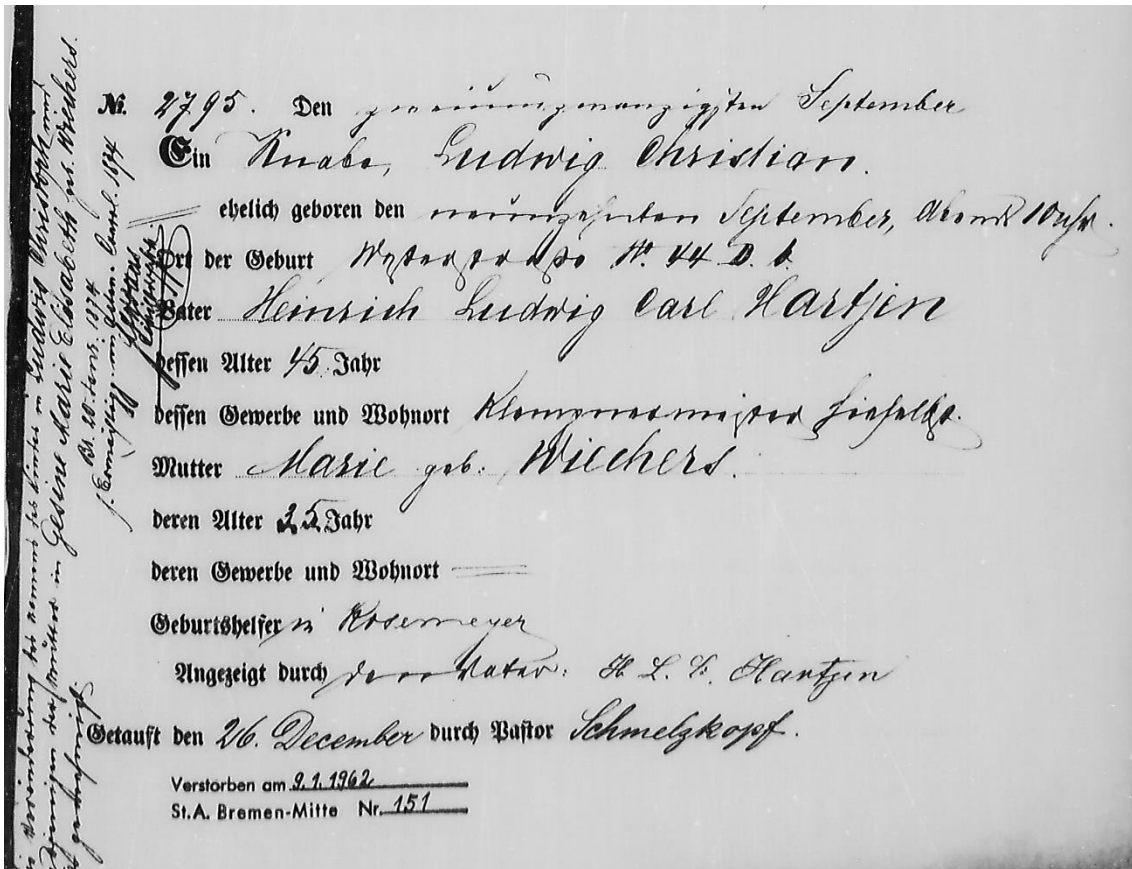 No. 2795. Den zweiundzwanzigsten September
Ein Knabe, Ludwig Christian.
ehelich geboren den neunzehnten September, Abends 10 Uhr.
Ort der Geburt Westerstraße N. 44
Vater Heinrich Ludwig Carl Hartjen
dessen Alter 45 Jahr
dessen Gewerbe und Wohnort Klempnermeister hieselbst.
Mutter Marie geb. Wiechers.
deren Alter 25 Jahr
deren Gewerbe und Wohnort
Geburtshelferin Rosemeyer
Angezeigt durch den Vater: H. L. C. Hartjen
Getauft den 26. December durch Pastor Schmelzkopf.
Verstorben am 9.1.1962
St.A. Bremen-Mitte Nr. 151
Veränderung des Namens des Kindes in Ludwig Christoph und
der Mutter in Gesine Marie Elisabeth geb. Wiechers.
genehmigt.
1874
1874